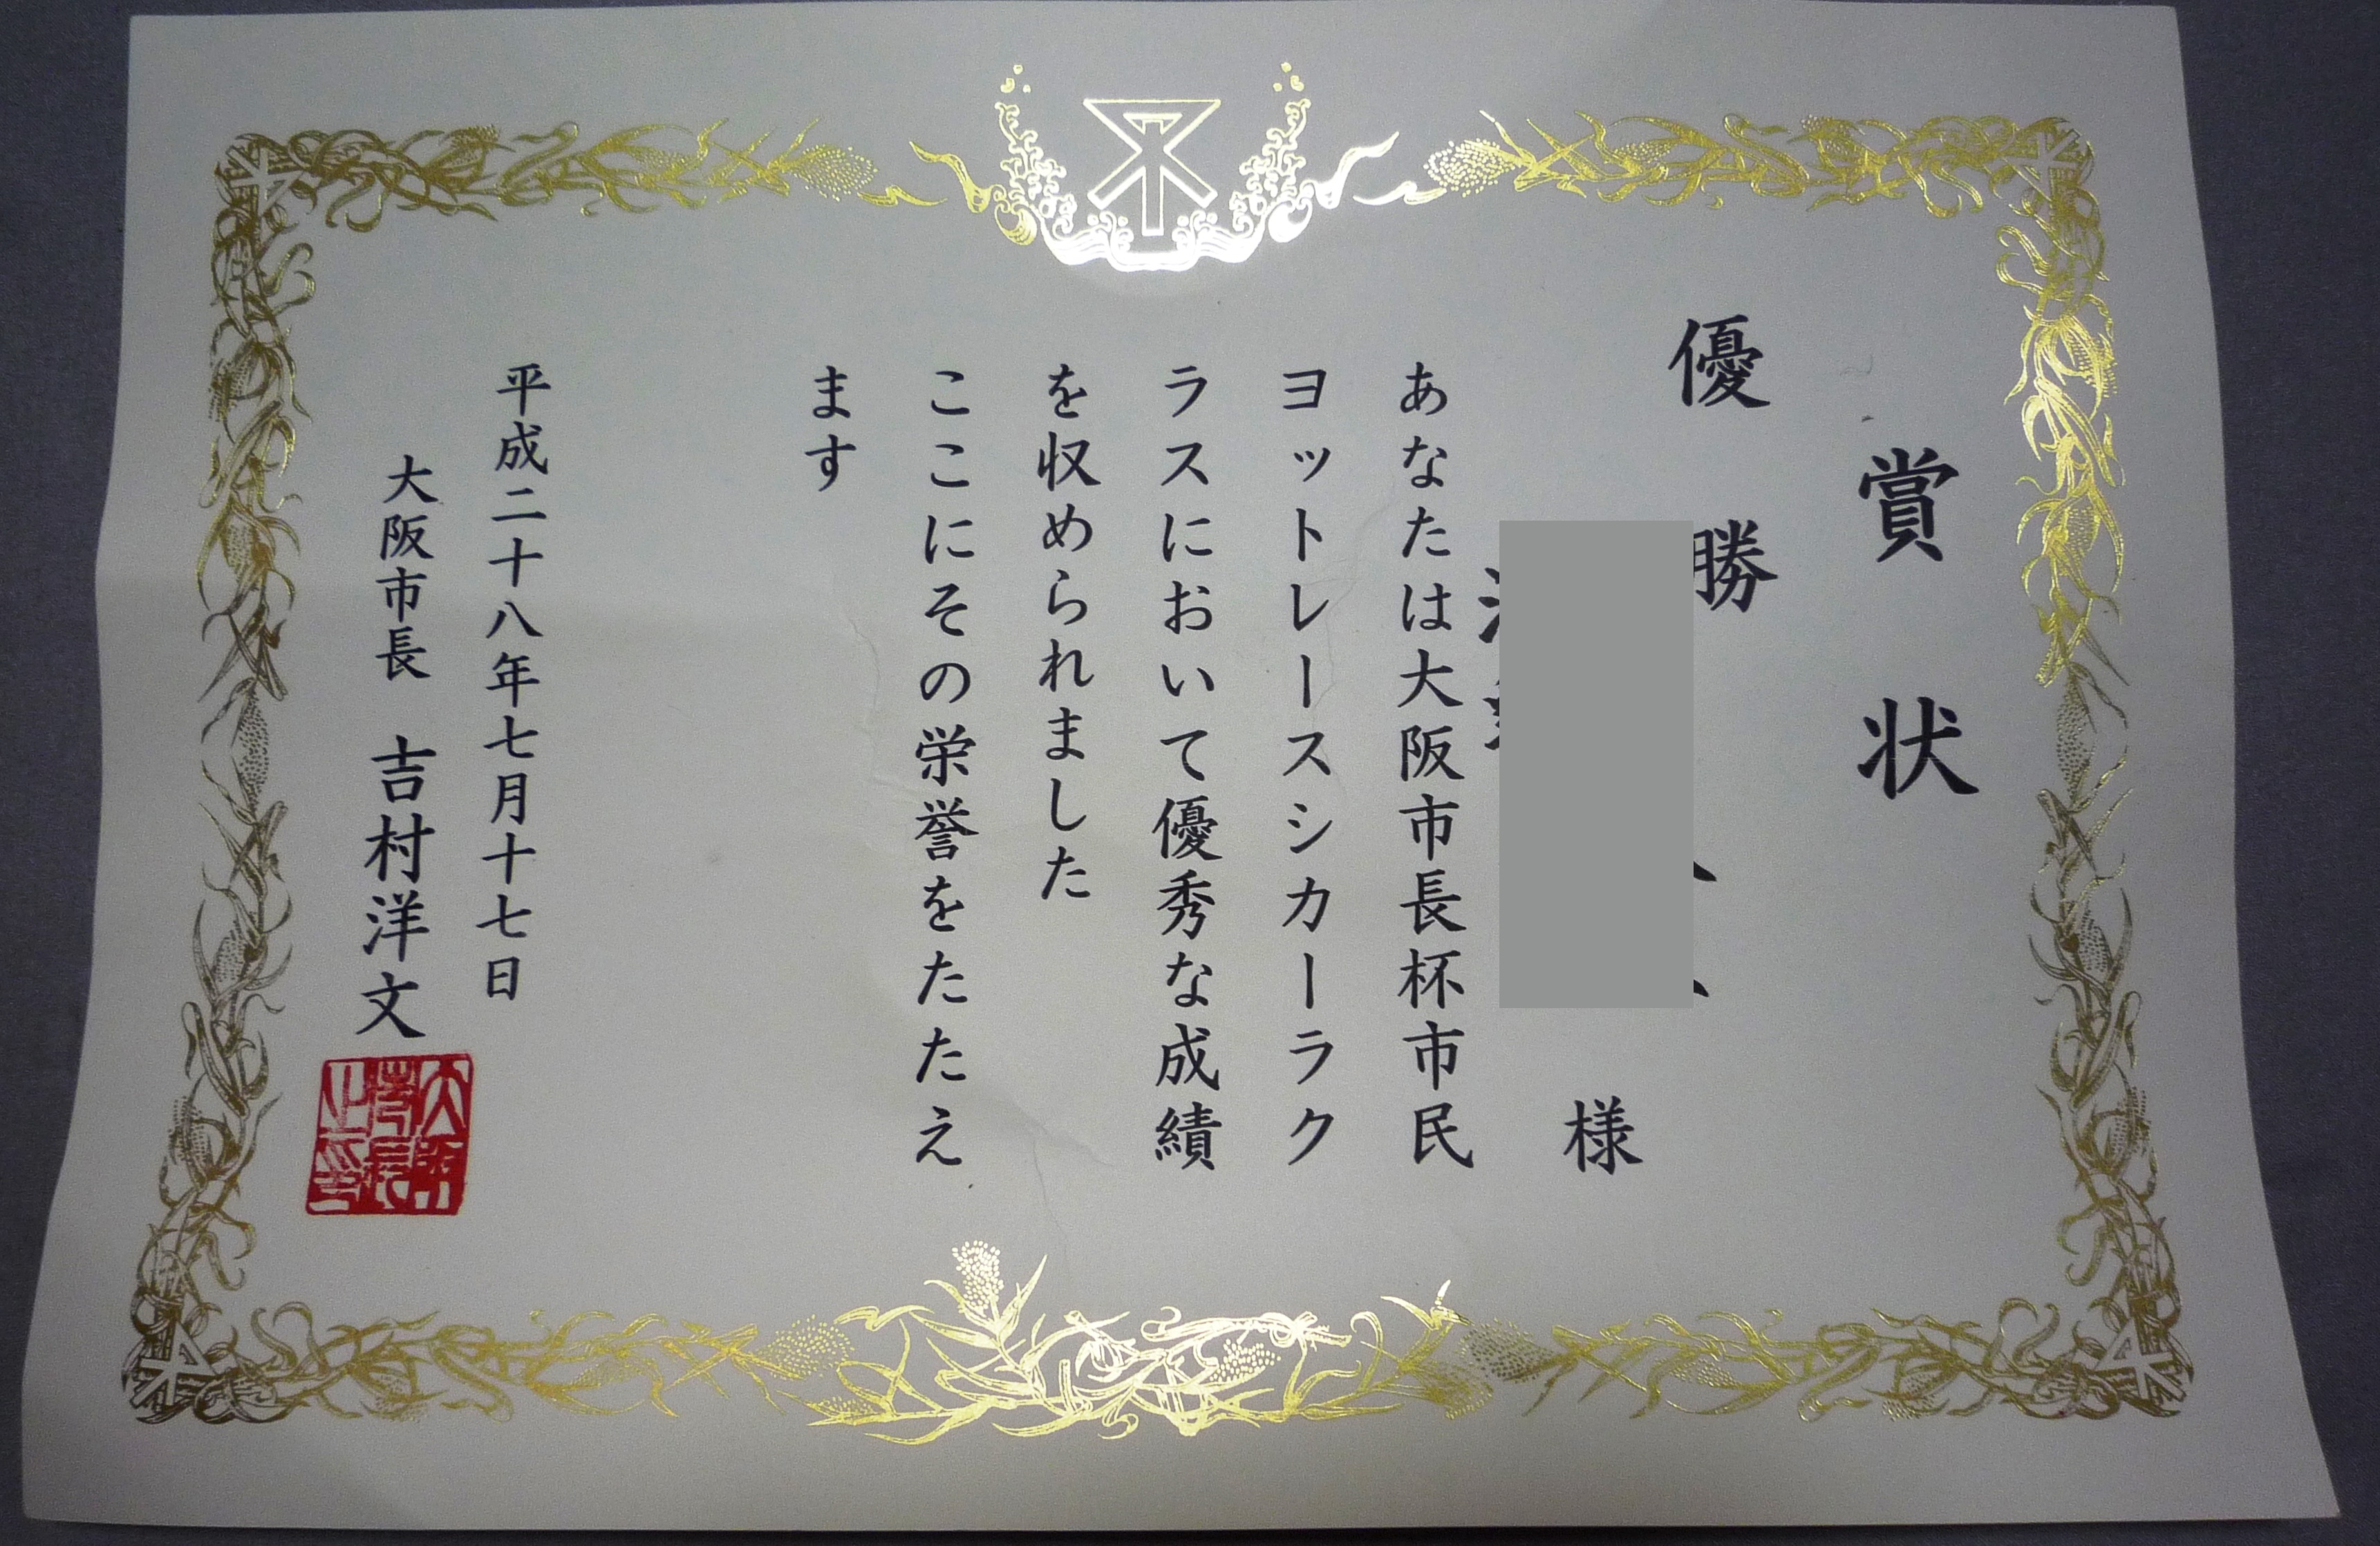 賞状
優勝
様
あなたは大阪市長杯市民
ヨットレースシカーラク
ラスにおいて優秀な成績
を収められました
ここにその栄誉をたたえ
ます
平成二十八年七月十七日
大阪市長 吉村洋文
大阪市長之印